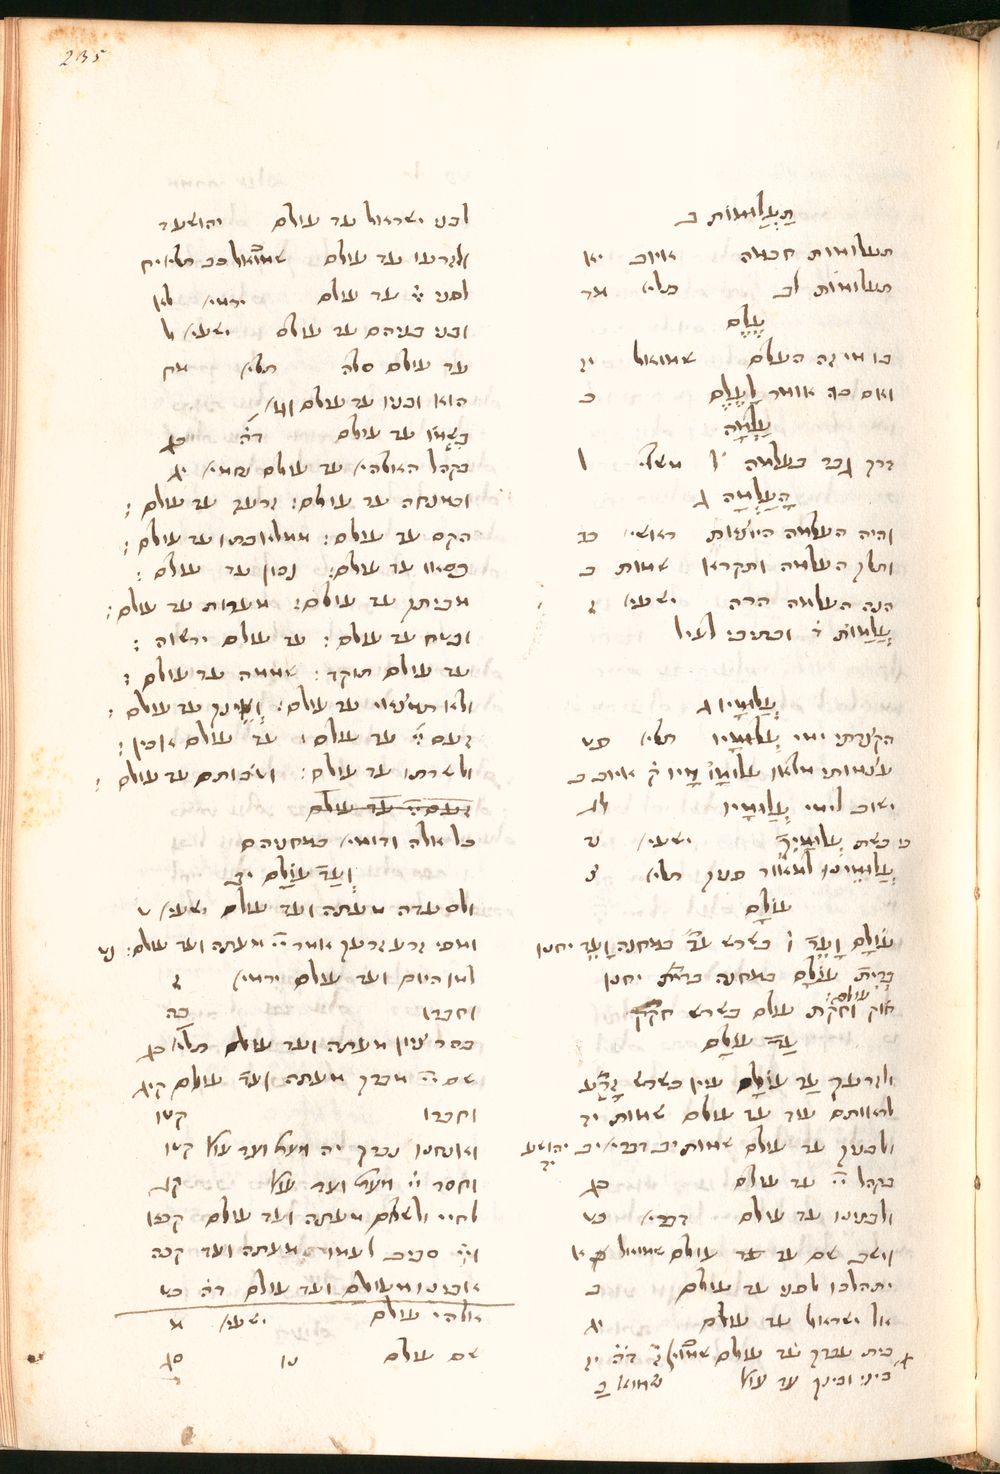 235
תַּעֲלֻמוֹת ב
תעלומות חכמה איוב יא
תעלומות לב תלי׳ מד
עֶלֶם
בן מי זה העלם שמואל יז
ואם כה אומר לָעֶלֶם כ
עַלְמָה
דרך גבר בעלמה משלי ל
הָעַלְמָה ג
והיה העלמה היוצאת ראשי׳ כד
ותלך העלמה ותקרא שמות ב
הנה העלמה הרה ישעי׳ ז
עֲלָמוֹת וכתיבי לעיל
עֲלוּמָיו ג
הקצרת ימי עֲלוּמָיו תלי׳ פט
עצמותיו מלאו עלומו מָיו ק׳ איוב כ
ישוב לימי עֲלוּמָיו לג
כי בשת עֲלוּמַיִךְ ישעי׳ נד
עֲלֻמֵינוּ למאור פניך תלי׳ צ
עוֹלָם
עוֹלָם וָעֶד בשרש עד במחנה וָעֶד יחנו
בְּרִית עוֹלָם במחנה ברית יחנו
חוק עולם וחקת עולם בשרש חקק
עַד עוֹלָם
ולזרעך עַד עוֹלָם עיין בשרש זרע
לראותם עוד עד עולם שמות יד
ולבניך עד עולם שמות יב דברי׳ יב יהושע יד
בקהל יי׳ עד עולם כג
ולבנינו עד עולם דברי׳ כט
וישב שם עד עולם שמואל א
יתהלכו לפני עד עולם ב
אל ישראל עד עולם יג
בית עבדך עד עולם שמואל ז דה יז
ביני ובינך עד עול׳ שמואל כ
לבני ישראל עד עולם יהושע ד
ולזרעו עד עולם שמואל כב תלי׳ יח
לפני יי׳ עד עולם ירמי׳ לא
ובני בניהם עד עולם יחזק׳ ל
עד עולם סלה תלי׳ מח
הוא ובניו עד עולם
בִּשְׁמוֹ עד עולם דה כג
בקהל האלהי׳ עד עולם נחמי׳ יג
ובמנוחה עד עולם: זרעך עד עולם:
הקם עד עולם: ממלכתו עד עולם:
כסאו עד עולם: נכון עד עולם:
מביתך עד עולם: מערות עד עולם:
ובטח עד עולם: עד עולם ירשוה:
עד עולם תוקד: שממה עד עולם:
ולא תמצאי עד עולם: וְאֵינֵךְ עד עולם:
זעם יי׳ עד עולם: עד עולם אכין:
ולשרתו עד עולם: וצדקתם עד עולם:
זעם יי׳ עד עולם
כל אלה ודומי׳ במחניהם
וְעַד עוֹלָם יב
ולסעדה מעתה ועד עולם ישעי׳ ט
ומפי זרע זרעך אמר יי׳ מעתה ועד עולם: נט
למן היום ועד עולם ירמי׳ ז
וחברו כה
בהר ציון מעתה ועד עולם תלי׳
שם יי׳ מברך מעתה ועד עולם קיג
וחברו קטו
ואנחנו נברך יה מעת׳ ועד עול׳ קטו
וחסד יי׳ מעול׳ ועד עול׳ קג
לחיי ולשלם מעתה ועד עולם קכא
ויי׳ סביב לעמו מעתה ועד קכה
אבינו מעולם ועד עולם דה כט
אלהי עולם ישעי׳ מ
שם עולם נו סג